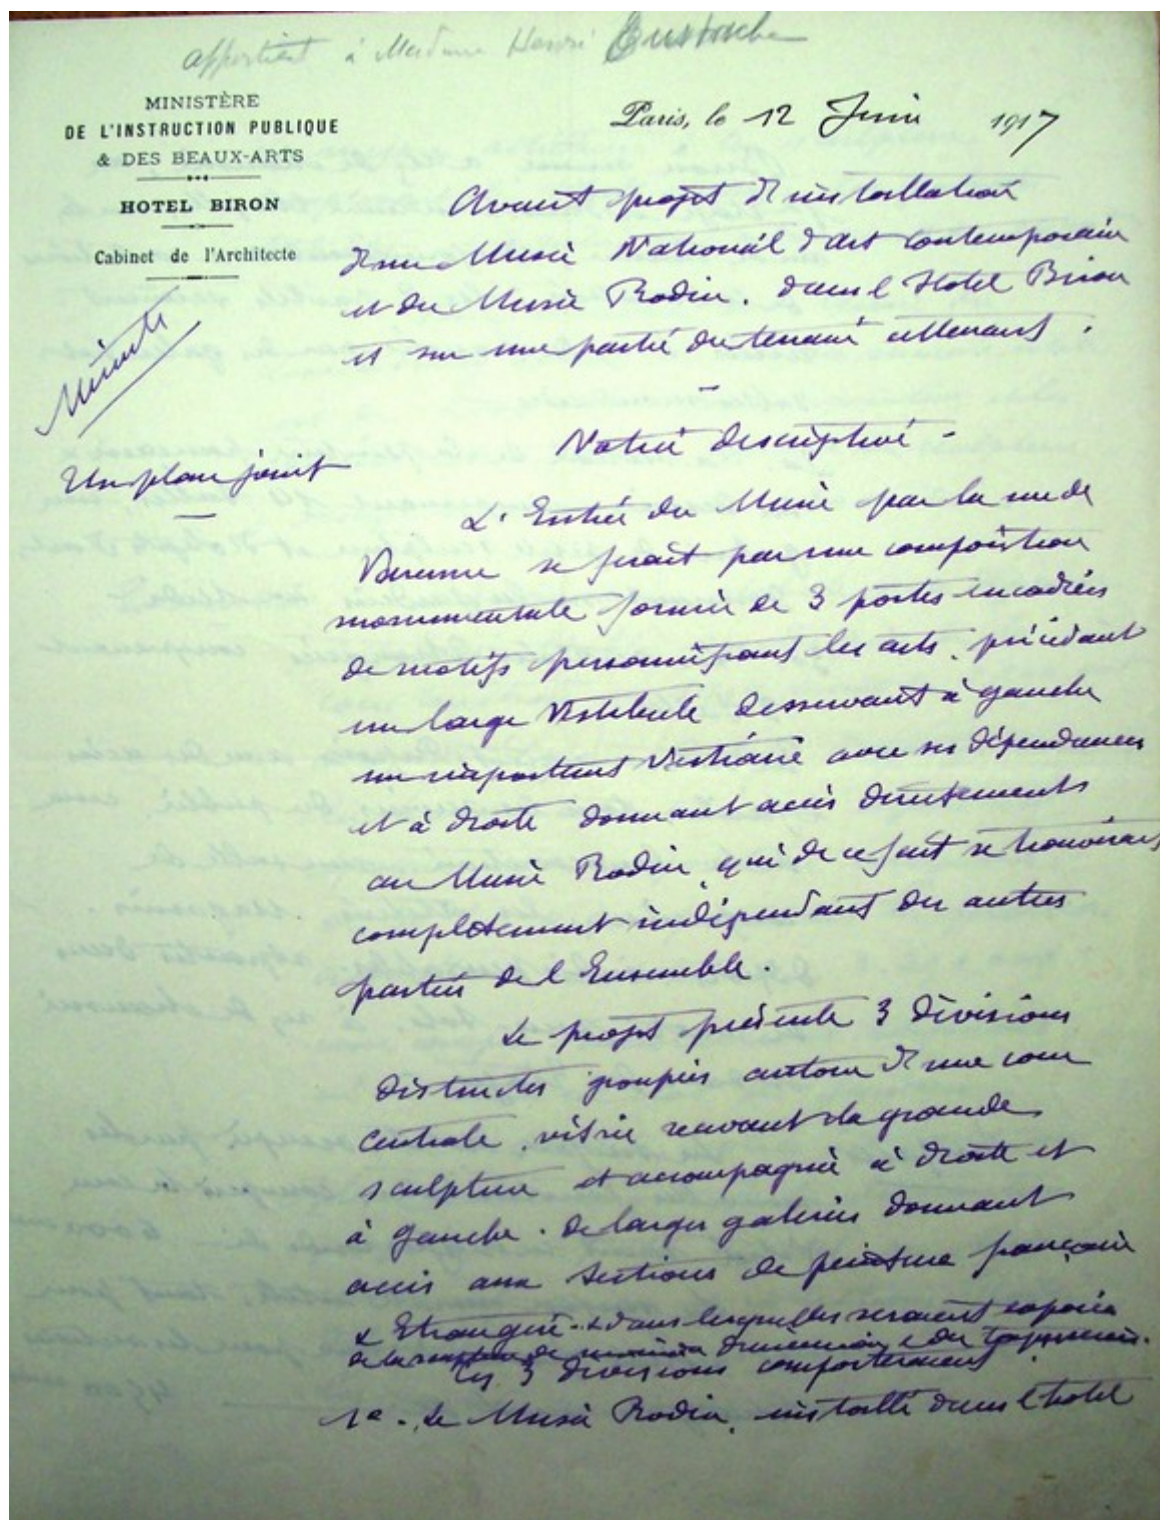 appartient à Madame Henri Eustache
MINISTÈRE
DE L'INSTRUCTION PUBLIQUE
& DES BEAUX-ARTS
HOTEL BIRON
Cabinet de l'Architecte
Paris, le 12 Juin 1917
Minute
Un plan joint
Avant projet d'installation
d'un Musée National d'art contemporain
et du Musée Rodin. dans l'Hotel Biron
et sur une partie du terrain attenant.
Notice descriptive -
L'Entrée du Musée par la rue de
Varenne se ferait par une composition
monumentale formée de 3 portes encadrées
de motifs personnifiant les arts, précédant
un large Vestibule desservant à gauche
un important Vestiaire avec ses dépendances
et à droite donnant accès directement
au Musée Rodin, qui de ce fait se trouverait
complètement indépendant des autres
parties de l'Ensemble.
Le projet présente 3 divisions
distinctes groupées autour d'une cour
centrale, vitrée recevant la grande
sculpture et accompagnée à droite et
à gauche. de larges galeries donnant
accès aux sections de peinture française
& Etrangère - & dans lesquelles seraient exposés
de la sculpture de dimension & des tapisseries.
Les 3 divisions comporteraient
1º. Le Musée Rodin, installé dans l'hotel